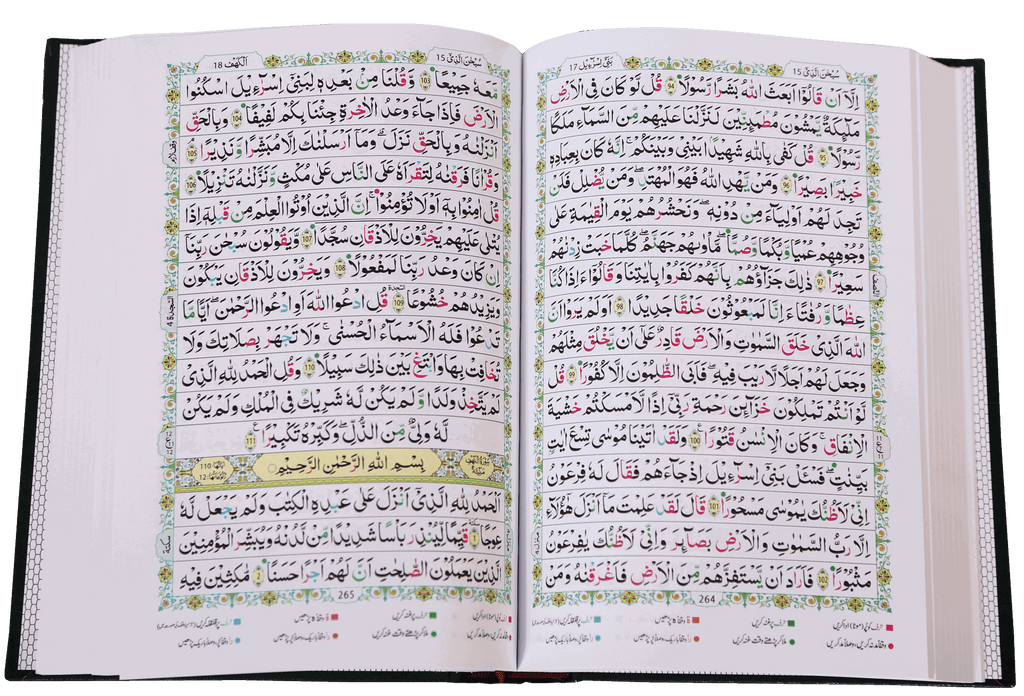 سُبْحٰنَ الَّذِیْ 15
بَنِیْ اِسْرَآءِیْل 17
اِلَّاۤ اَنْ قَالُوْۤا اَبَعَثَ اللّٰهُ بَشَرًا رَّسُوْلًا 94 قُلْ لَّوْ كَانَ فِی الْاَرْضِ
مَلٰٓىِٕكَةٌ یَّمْشُوْنَ مُطْمَىِٕنِّیْنَ لَنَزَّلْنَا عَلَیْهِمْ مِّنَ السَّمَآءِ مَلَكًا
رَّسُوْلًا 95 قُلْ كَفٰی بِاللّٰهِ شَهِیْدًۢا بَیْنِیْ وَبَیْنَكُمْ ؕ اِنَّهٗ كَانَ بِعِبَادِهٖ
خَبِیْرًۢا بَصِیْرًا 96 وَمَنْ یَّهْدِ اللّٰهُ فَهُوَ الْمُهْتَدِ ۚ وَمَنْ یُّضْلِلْ فَلَنْ
تَجِدَ لَهُمْ اَوْلِیَآءَ مِنْ دُوْنِهٖ ؕ وَنَحْشُرُهُمْ یَوْمَ الْقِیٰمَةِ عَلٰی
وُجُوْهِهِمْ عُمْیًا وَّبُكْمًا وَّصُمًّا ؕ مَاْوٰىهُمْ جَهَنَّمُ ؕ كُلَّمَا خَبَتْ زِدْنٰهُمْ
سَعِیْرًا 97 ذٰلِكَ جَزَآؤُهُمْ بِاَنَّهُمْ كَفَرُوْا بِاٰیٰتِنَا وَقَالُوْۤا ءَاِذَا كُنَّا
عِظَامًا وَّرُفَاتًا ءَاِنَّا لَمَبْعُوْثُوْنَ خَلْقًا جَدِیْدًا 98 اَوَلَمْ یَرَوْا اَنَّ
اللّٰهَ الَّذِیْ خَلَقَ السَّمٰوٰتِ وَالْاَرْضَ قَادِرٌ عَلٰۤی اَنْ یَّخْلُقَ مِثْلَهُمْ
وَجَعَلَ لَهُمْ اَجَلًا لَّا رَیْبَ فِیْهِ ؕ فَاَبَی الظّٰلِمُوْنَ اِلَّا كُفُوْرًا 99 قُلْ
لَّوْ اَنْتُمْ تَمْلِكُوْنَ خَزَآىِٕنَ رَحْمَةِ رَبِّیْۤ اِذًا لَّاَمْسَكْتُمْ خَشْیَةَ
الْاِنْفَاقِ ؕ وَكَانَ الْاِنْسَانُ قَتُوْرًا 100 وَلَقَدْ اٰتَیْنَا مُوْسٰی تِسْعَ اٰیٰتٍۭ
بَیِّنٰتٍ فَسْـَٔلْ بَنِیْۤ اِسْرَآءِیْلَ اِذْ جَآءَهُمْ فَقَالَ لَهٗ فِرْعَوْنُ
اِنِّیْ لَاَظُنُّكَ یٰمُوْسٰی مَسْحُوْرًا 101 قَالَ لَقَدْ عَلِمْتَ مَاۤ اَنْزَلَ هٰۤؤُلَآءِ
اِلَّا رَبُّ السَّمٰوٰتِ وَالْاَرْضِ بَصَآىِٕرَ ۚ وَاِنِّیْ لَاَظُنُّكَ یٰفِرْعَوْنُ
مَثْبُوْرًا 102 فَاَرَادَ اَنْ یَّسْتَفِزَّهُمْ مِّنَ الْاَرْضِ فَاَغْرَقْنٰهُ وَمَنْ
264
سُبْحٰنَ الَّذِیْ 15
اَلْكَهْف 18
مَّعَهٗ جَمِیْعًا 103 وَّقُلْنَا مِنْۢ بَعْدِهٖ لِبَنِیْۤ اِسْرَآءِیْلَ اسْكُنُوا
الْاَرْضَ فَاِذَا جَآءَ وَعْدُ الْاٰخِرَةِ جِئْنَا بِكُمْ لَفِیْفًا 104 وَبِالْحَقِّ
اَنْزَلْنٰهُ وَبِالْحَقِّ نَزَلَ ؕ وَمَاۤ اَرْسَلْنٰكَ اِلَّا مُبَشِّرًا وَّنَذِیْرًا 105
وَقُرْاٰنًا فَرَقْنٰهُ لِتَقْرَاَهٗ عَلَی النَّاسِ عَلٰی مُكْثٍ وَّنَزَّلْنٰهُ تَنْزِیْلًا 106
قُلْ اٰمِنُوْا بِهٖۤ اَوْ لَا تُؤْمِنُوْا ؕ اِنَّ الَّذِیْنَ اُوْتُوا الْعِلْمَ مِنْ قَبْلِهٖۤ اِذَا
یُتْلٰی عَلَیْهِمْ یَخِرُّوْنَ لِلْاَذْقَانِ سُجَّدًا 107 وَّیَقُوْلُوْنَ سُبْحٰنَ رَبِّنَاۤ
اِنْ كَانَ وَعْدُ رَبِّنَا لَمَفْعُوْلًا 108 وَیَخِرُّوْنَ لِلْاَذْقَانِ یَبْكُوْنَ
وَیَزِیْدُهُمْ خُشُوْعًا 109 قُلِ ادْعُوا اللّٰهَ اَوِ ادْعُوا الرَّحْمٰنَ ؕ اَیًّا مَّا
تَدْعُوْا فَلَهُ الْاَسْمَآءُ الْحُسْنٰی ۚ وَلَا تَجْهَرْ بِصَلَاتِكَ وَلَا
تُخَافِتْ بِهَا وَابْتَغِ بَیْنَ ذٰلِكَ سَبِیْلًا 110 وَقُلِ الْحَمْدُ لِلّٰهِ الَّذِیْ
لَمْ یَتَّخِذْ وَلَدًا وَّلَمْ یَكُنْ لَّهٗ شَرِیْكٌ فِی الْمُلْكِ وَلَمْ یَكُنْ
لَّهٗ وَلِیٌّ مِّنَ الذُّلِّ وَكَبِّرْهُ تَكْبِیْرًا 111
بِسْمِ اللّٰهِ الرَّحْمٰنِ الرَّحِیْمِ
اَلْحَمْدُ لِلّٰهِ الَّذِیْۤ اَنْزَلَ عَلٰی عَبْدِهِ الْكِتٰبَ وَلَمْ یَجْعَلْ لَّهٗ
عِوَجًا 1 قَیِّمًا لِّیُنْذِرَ بَاْسًا شَدِیْدًا مِّنْ لَّدُنْهُ وَیُبَشِّرَ الْمُؤْمِنِیْنَ
الَّذِیْنَ یَعْمَلُوْنَ الصّٰلِحٰتِ اَنَّ لَهُمْ اَجْرًا حَسَنًا 2 مَّاكِثِیْنَ فِیْهِ
265